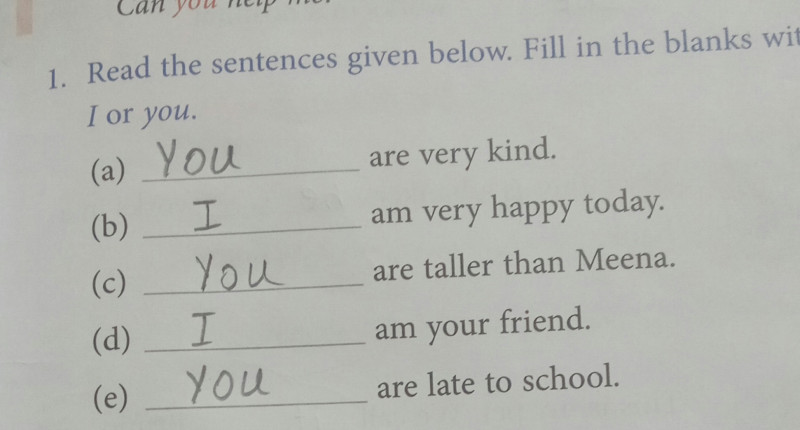 Can you help me.
1. Read the sentences given below. Fill in the blanks wit
I or you.
(a) You are very kind.
(b) I am very happy today.
(c) You are taller than Meena.
(d) I am your friend.
(e) You are late to school.